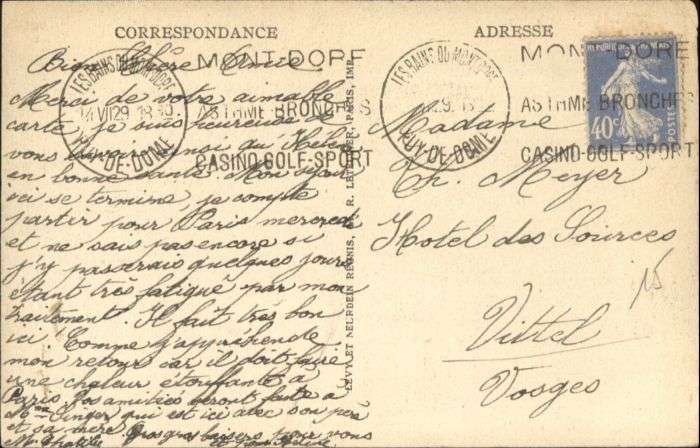 CORRESPONDANCE
ADRESSE
LES BAINS DU MONT-DORE
14 VII 29 18 30
PUY-DE-DOME
MONT-DORE
ASTHME BRONCHES
CASINO-GOLF-SPORT
LES BAINS DU MONT-DORE
PUY-DE-DOME
MONT-DORE
ASTHME BRONCHES
CASINO-GOLF-SPORT
40c
POSTES
Bien Chère Amie
Merci de votre aimable
carte, je suis heureuse de
vous
en bonne santé. Mon séjour
ici se termine, je compte
partir pour Paris mercredi
et ne sais pas encore si
j'y passerais quelques jours
étant très fatiguée par mon
traitement. Il fait très bon
ici! Comme j'appréhende
mon retour car il doit faire
une chaleur étouffante à
Paris. Vos amitiés seront faite à
Mme qui est ici avec son père
et sa mère Gros gros baisers pour vous
LEVY ET NEURDEIN REUNIS, IMP.
Madame
Ch. Meyer
Hotel des Sources
Vittel
Vosges
15